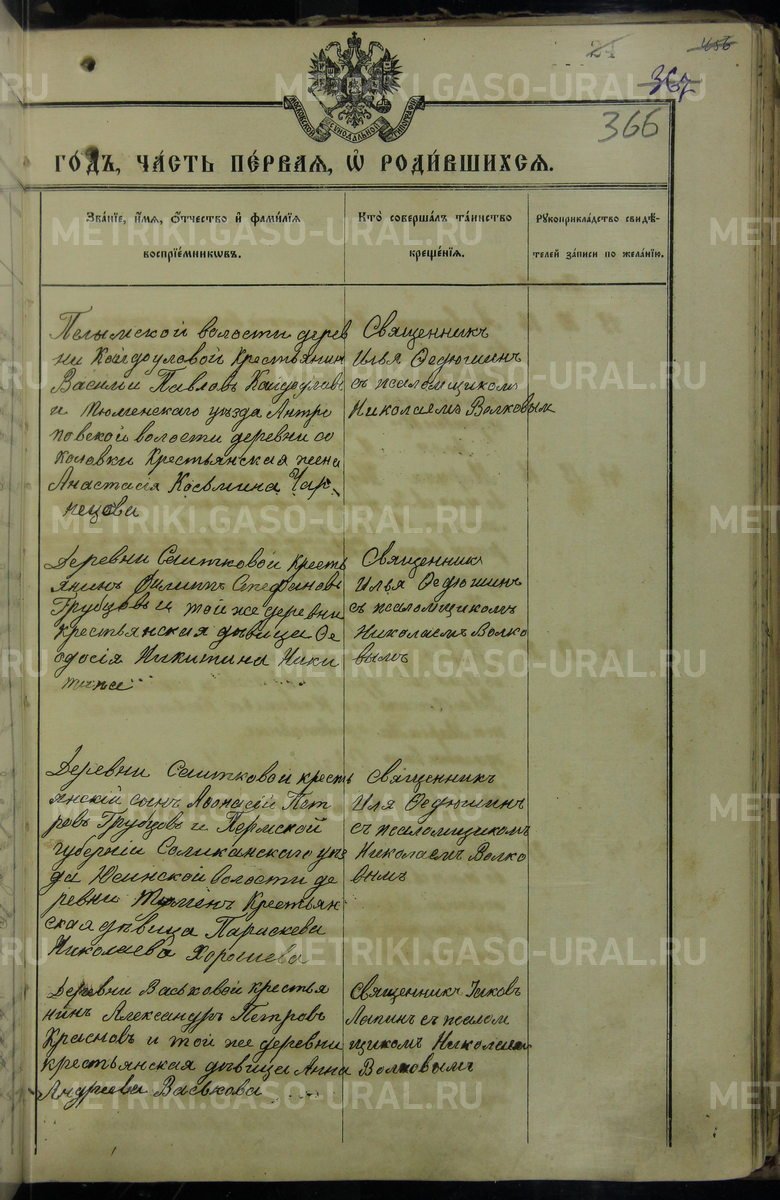 24
456
367
366
МОСКОВСКОЙ СѴНОДАЛЬНОЙ ТИПОГРАФІИ
ГОДЪ, ЧА́СТЬ ПЕ́РВАЯ, Ѡ҆ РОДИ́ВШИХСЯ.
Зва́нїе, и҆́мя, ѻ҆́тчество и҆ фами́лїя
воспрїе́мникѡвъ.
Кто̀ соверша́лъ та́инство
креще́нїѧ.
Рꙋкоприкла́дство свидѣ́-
телей за́писи по жела́нїю.
Пелымской волости дерев
ни Кайдауловой Крестьянин
Василий Павловъ Кайдаулов
и Тюменскаго уѣзда Антро
повской волости деревни со
коловки Крестьянская жена
Анастасія Косьмина Чар-
нецова
Священникъ
Илья Ѳедюшинъ
съ псаломщикомъ
Николаемъ Волковым
Деревни Саитковой кресть
янинъ Филиппъ Стефановъ
Трубцовъ и той же деревни
крестьянская дѣвица Ѳе
одосія Никитина Ники
тина
Священникъ
Илья Ѳедюшинъ
съ псаломщикомъ
Николаемъ Волко
вымъ
Деревни Саитковой кресть
янскій сынъ Аѳонасій Пет
ровъ Трубцовъ и Пермской
губерніи Соликанскаго уѣз
да Юсинской волости де
ревни Крестьян
ская дѣвица Параскева
Николаева Хорошева
Священникъ
Иля Ѳедюшинъ
съ псаломщикомъ
Николаемъ Волко
вымъ
Деревни Васьковой крестья
нинъ Александръ Петровъ
Красновъ и той же деревни
крестьянская дѣвица Анна
Андреева Васькова
Священникъ Іаковъ
Лапинъ съ псалом
щикомъ Николаем
Волковымъ
METRIKI.GASO-URAL.RU